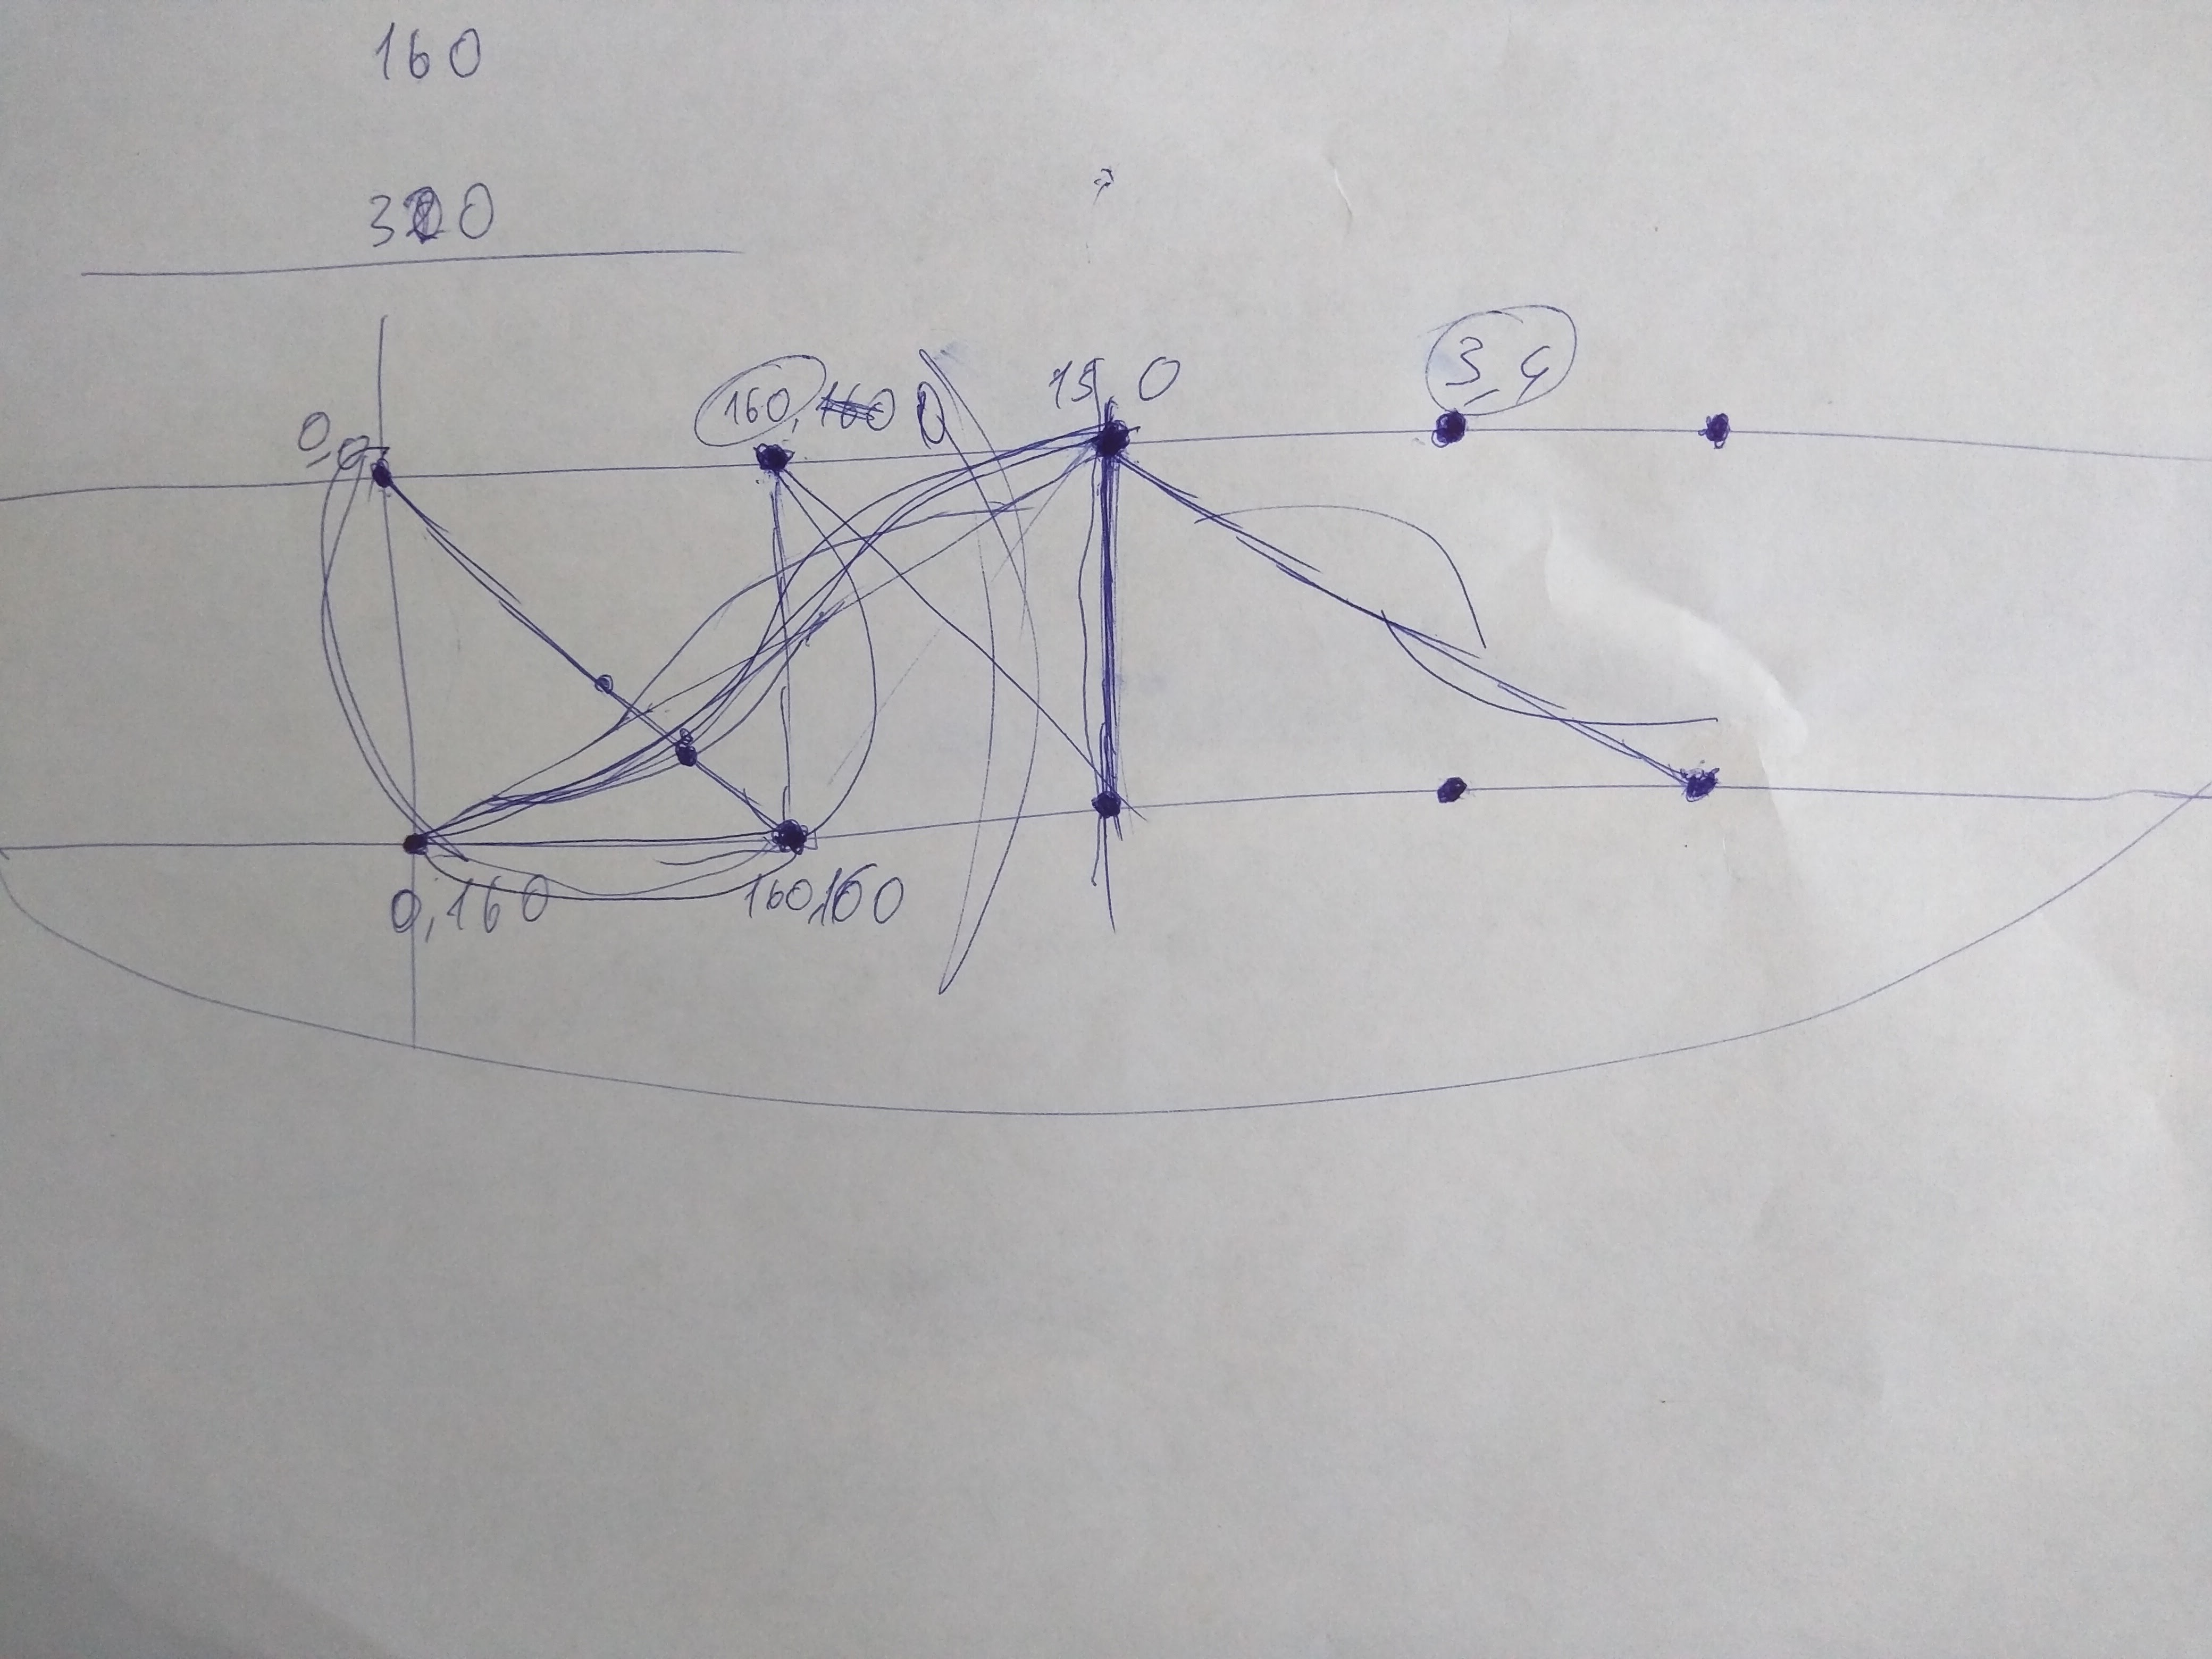 160
320
3,4
160, 160 0
15, 0
0,0
0,160
160,160